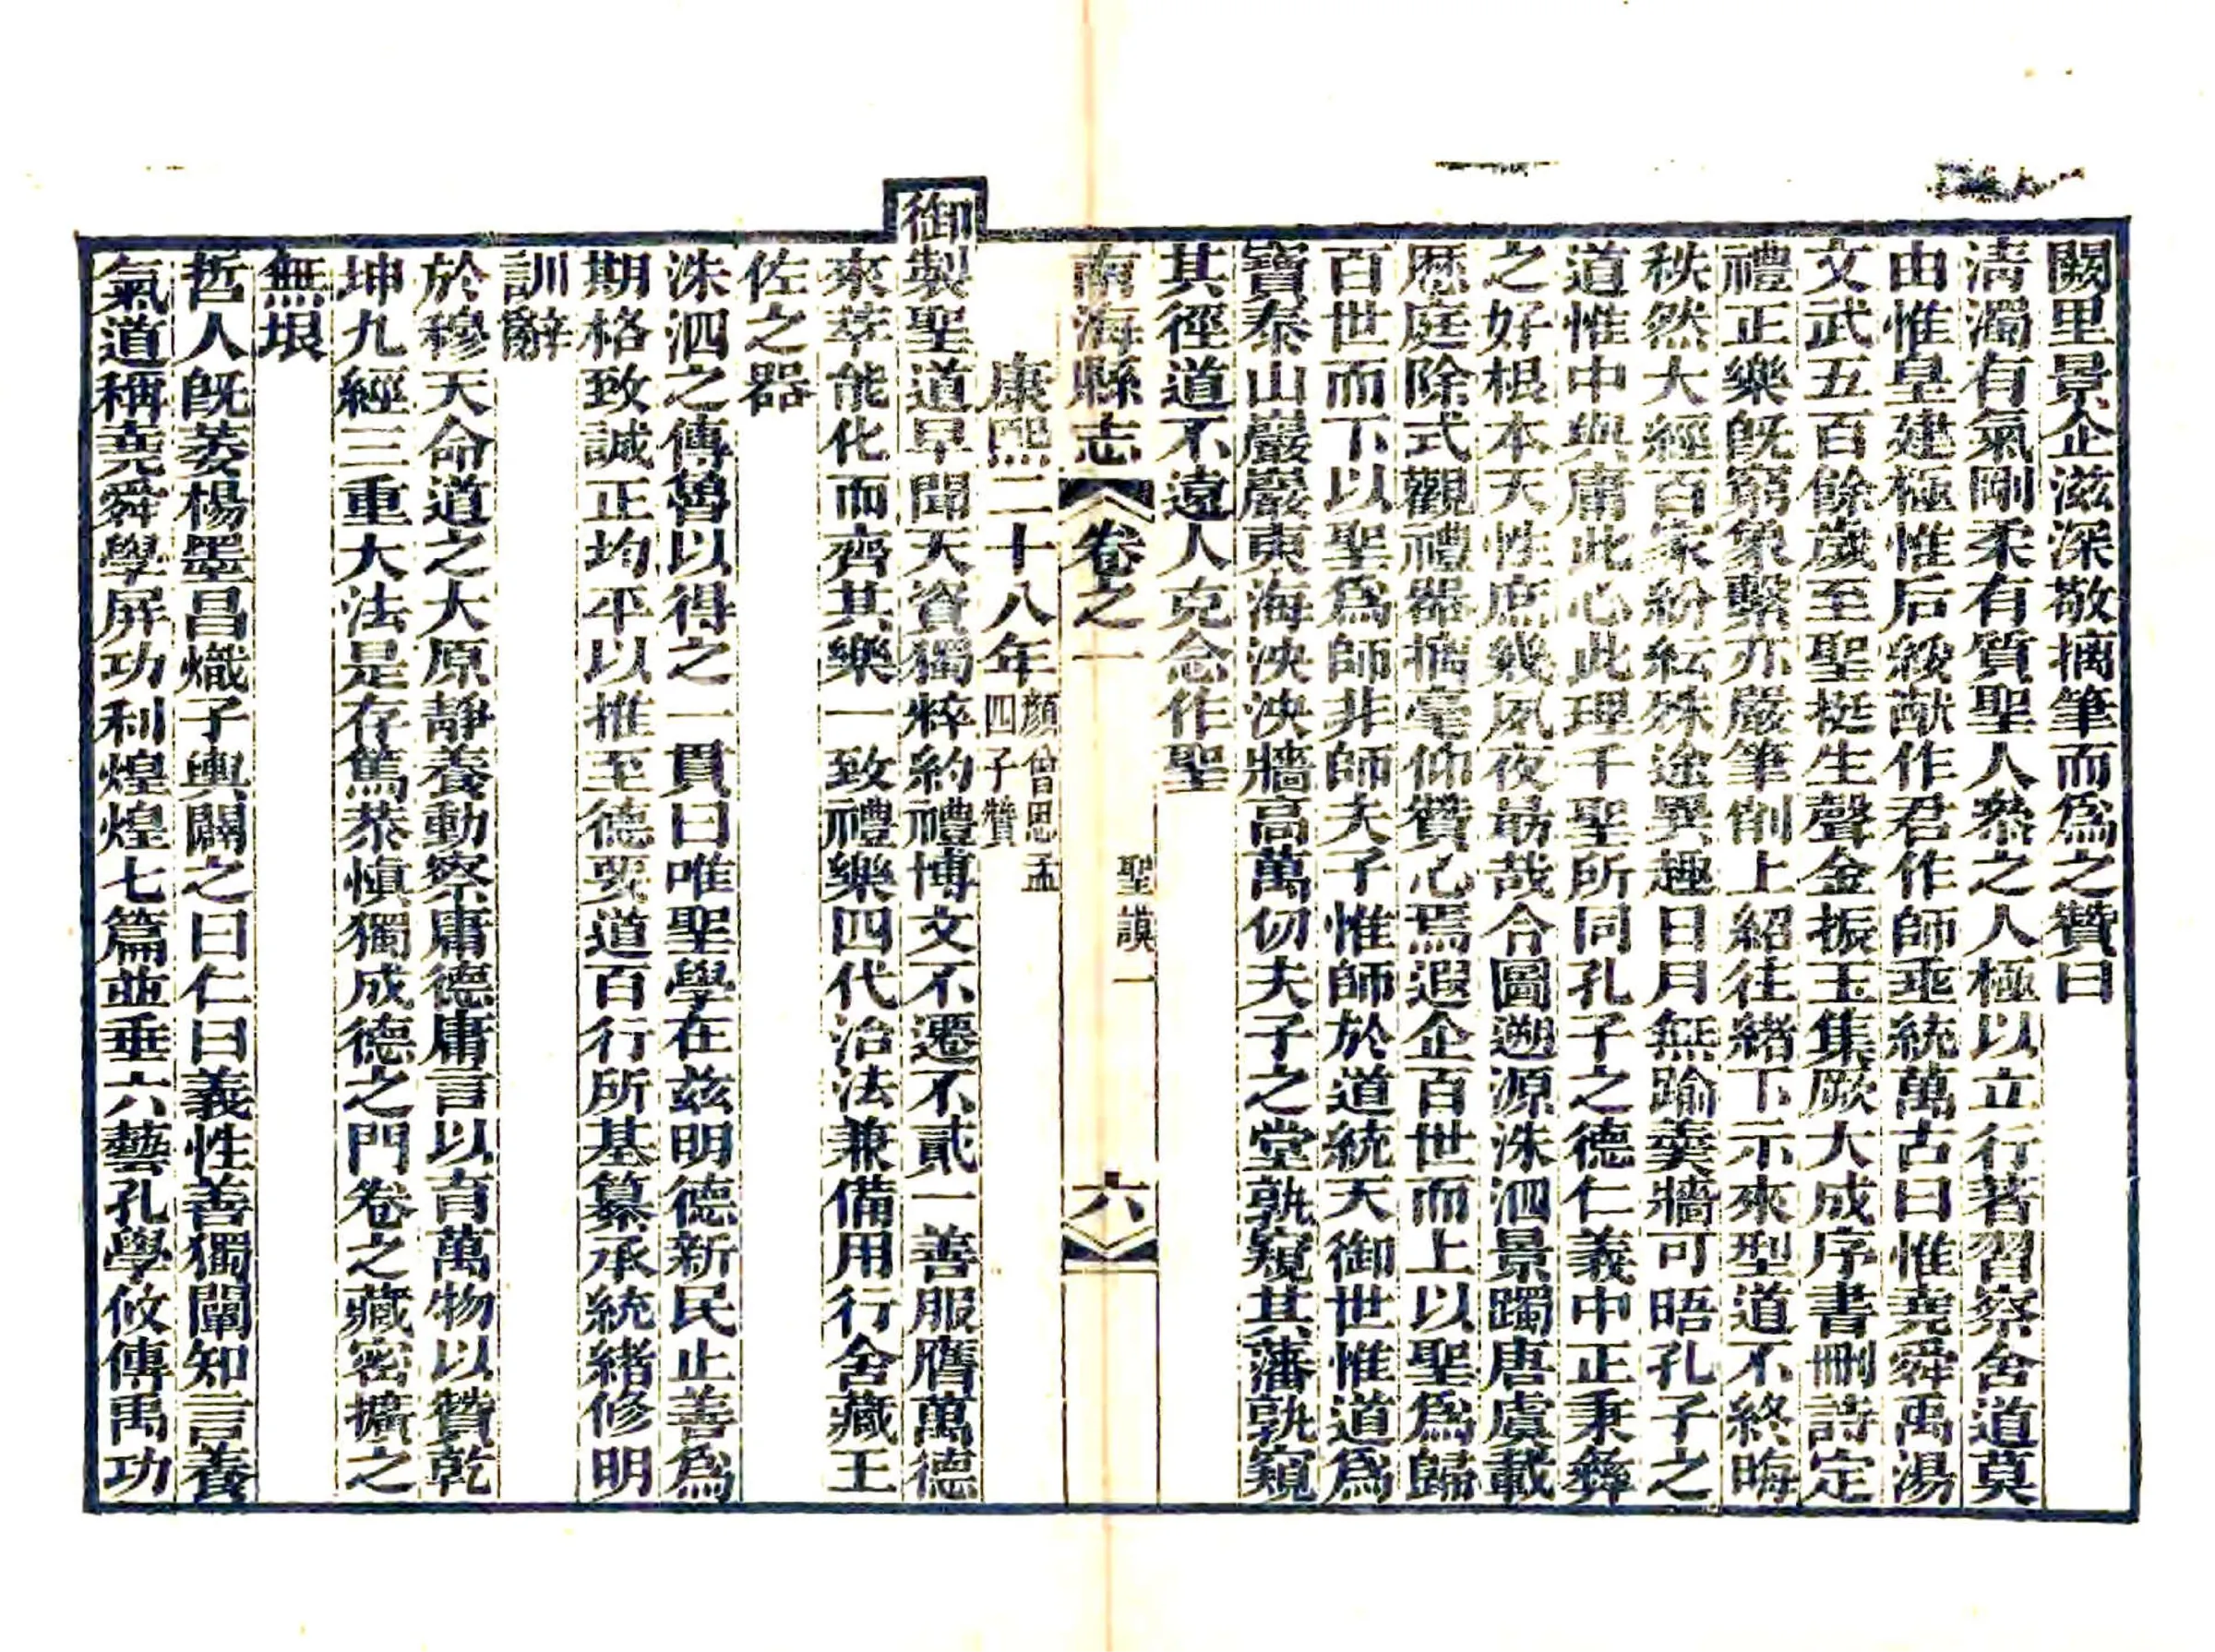 闕里景企滋深敬摛筆而爲之贊曰
清濁有氣剛柔有質聖人叅之人極以立行著習察舍道莫
由惟皇建極惟后綏猷作君作師垂統萬古曰惟堯舜禹湯
文武五百餘歲至聖挺生聲金振玉集厥大成序書刪詩定
禮正樂旣窮象繫亦嚴筆削上紹往緒下示來型道不終晦
秩然大經百家紛紜殊途異趣日月無踰羹牆可晤孔子之
道惟中與庸此心此理千聖所同孔子之德仁義中正秉彝
之好根本天性庶幾夙夜朂哉令圖遡源洙泗景躅唐虞載
歷庭除式觀禮器摛毫仰贊心焉遐企百世而上以聖爲歸
百世而下以聖爲師非師夫子惟師於道統天御世惟道爲
寶泰山巖巖東海泱泱牆高萬仞夫子之堂孰窺其藩孰窺
其徑道不遠人克念作聖
南海縣志 卷之一 聖謨一 六
康熙二十八年顏曾思孟四子贊
御製聖道早聞天資獨粹約禮博文不遷不貳一善服膺萬德
來萃能化而齊其樂一致禮樂四代治法兼備用行舍藏王
佐之器
洙泗之傳魯以得之一貫曰唯聖學在兹明德新民止善爲
期格致誠正均平以推至德要道百行所基纂承統緒修明
訓辭
於穆天命道之大原靜養動察庸德庸言以育萬物以贊乾
坤九經三重大法是存篤恭愼獨成德之門卷之藏密擴之
無垠
哲人旣萎楊墨昌熾子輿闢之曰仁曰義性善獨闡知言養
氣道稱堯舜學屏功利煌煌七篇並垂六藝孔學攸傳禹功